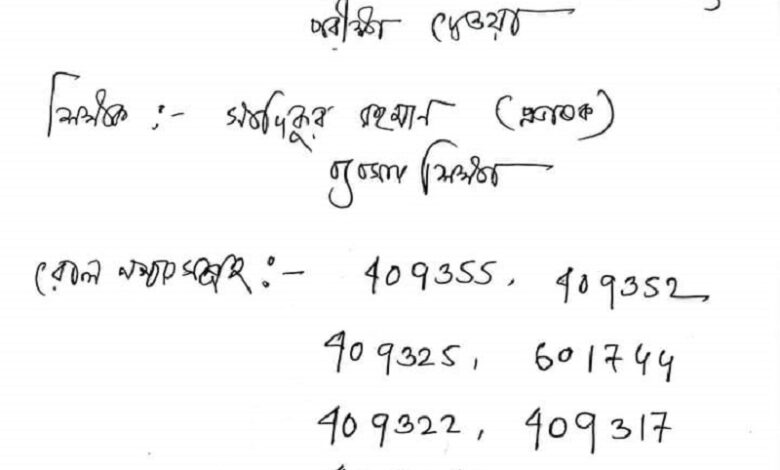 পরীক্ষা দেওয়া
শিক্ষক :- সাদিকুর রহমান (প্রভাষক)
ভূগোল শিক্ষা
রোল নম্বরসমূহ :- 409355, 409352,
409325, 601744
409322, 409317